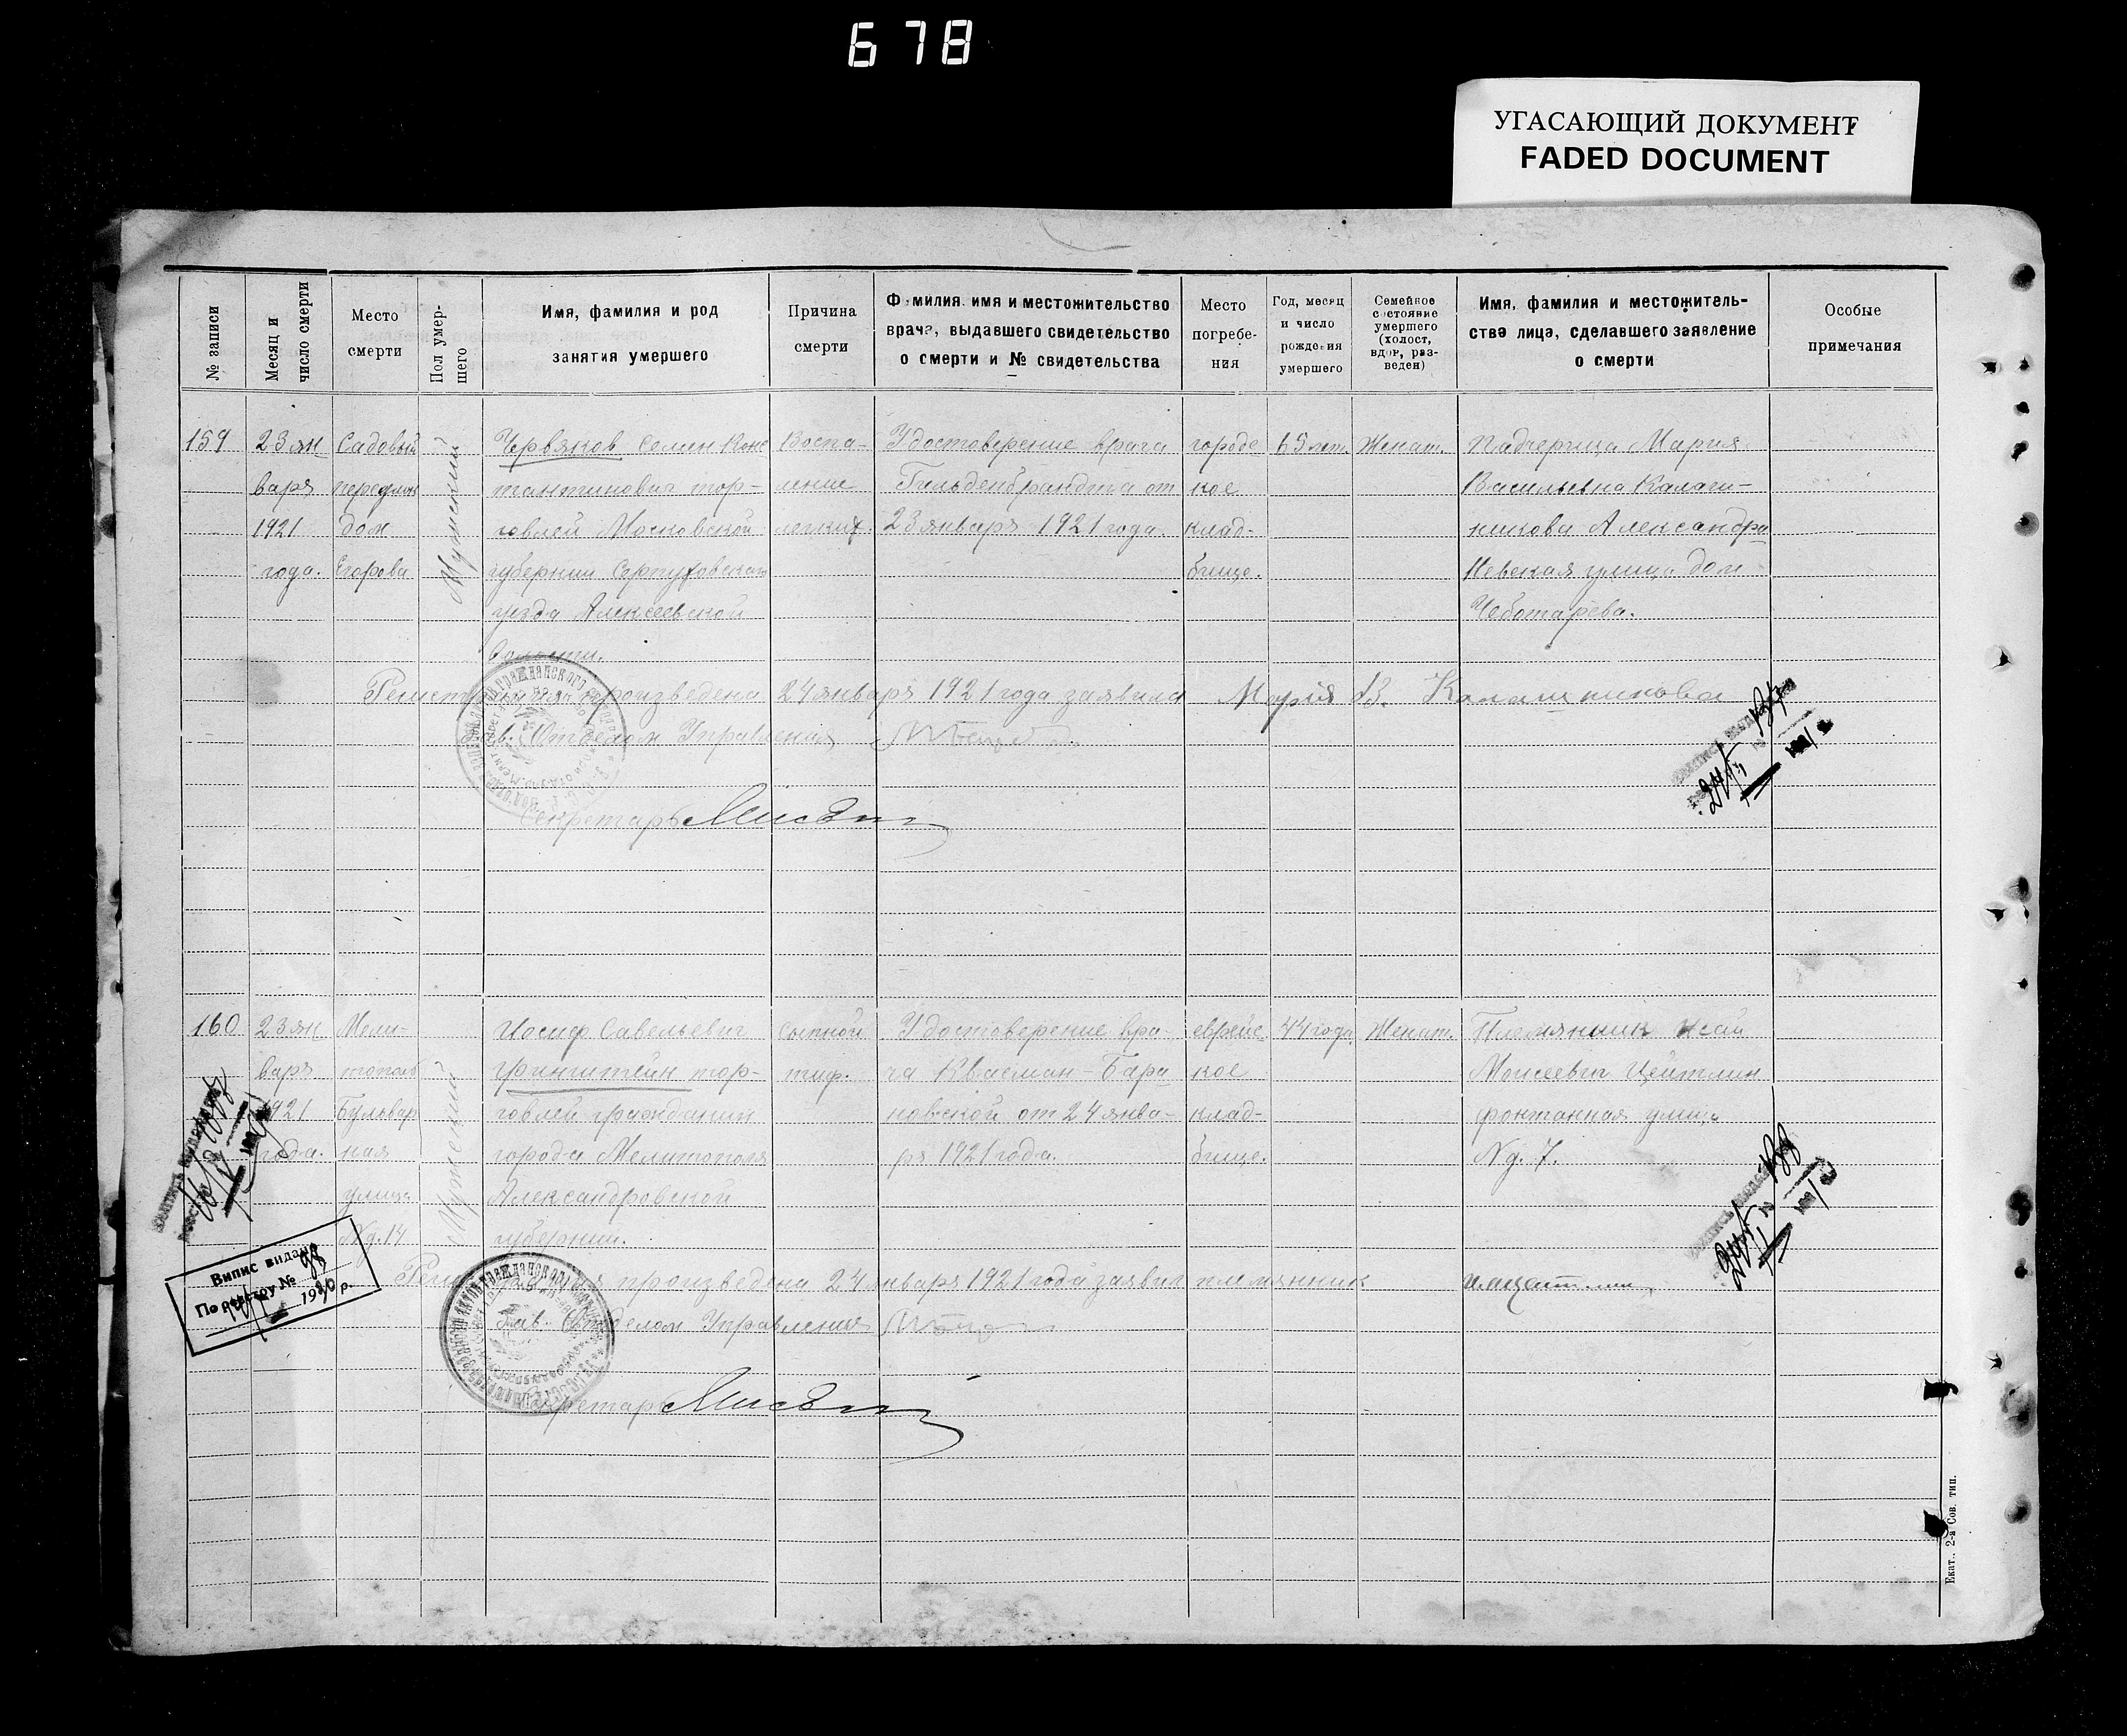 678
УГАСАЮЩИЙ ДОКУМЕНТ
FADED DOCUMENT
№ записи
Месяц и
число смерти
Место
смерти
Пол умер-
шего
Имя, фамилия и род
занятия умершего
Причина
смерти
Фамилия, имя и местожительство
врача, выдавшего свидетельство
о смерти и № свидетельства
Место
погребе-
ния
Год, месяц
и число
рождения
умершего
Семейное
состояние
умершего
(холост,
вдов, раз-
веден)
Имя, фамилия и местожитель-
ство лица, сделавшего заявление
о смерти
Особые
примечания
159
23 ян
варя
1921
года.
Садовый
дом
Егорова
Мужской
Червяков Семен Конс
тантинович тор-
говлей Московской
губернии Серпуховского
уезда Алексеевской
Волости.
Воспа-
ление
легких.
Удостоверение врача
Гильденбрандта от
23 января 1921 года.
городс
кое
клад-
бище.
65 лет.
Женат.
Падчерица Мария
Васильевна Калаш-
никова Александро
Невская улица дом
Чеботарева.
произведена 24 января 1921 года заявила Мария В. Калашникова
Зав. Отделом Управления
Секретарь
160
23 ян
варя
1921
года.
Мели-
тополь
Бульвар
ная
улица
№ д. 14
Мужской
Иосиф Савельевич
Финштейн тор-
говлей гражданин
города Мелитополя
Александровской
губернии.
сыпной
тиф.
Удостоверение вра-
ча Квасман-Бара
новской от 24 янва-
ря 1921 года.
еврейс
кое
клад-
бище.
44 года
Женат.
Племянник Исай
Моисеевич Цейтлин
фонтанная улица
№ д. 7.
произведена 24 января 1921 года заявил племянник
Зав. Отделом Управления
Секретарь
Випис видано
По реєстру № 98
19 р.
Екат., 2-я Сов. тип.